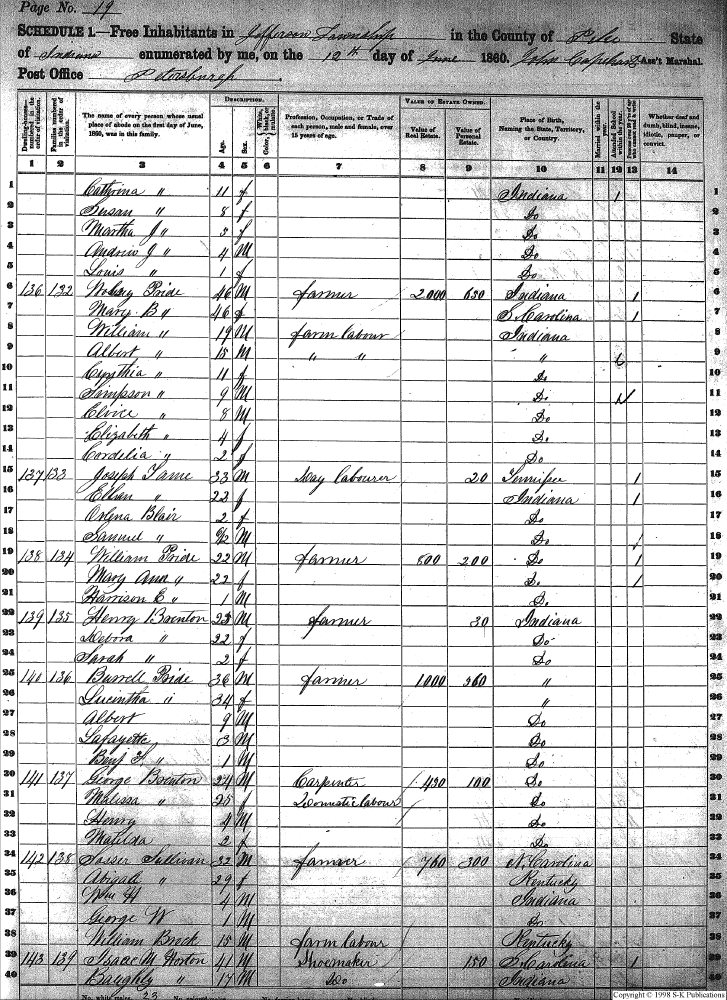 Page No. 19
SCHEDULE 1.—Free Inhabitants in Jefferson Township in the County of Pike State
of Indiana enumerated by me, on the 12th day of June 1860. John Ass't Marshal.
Post Office Petersburgh
Dwelling-houses numbered in the order of visitation.
Families numbered in the order of visitation.
The name of every person whose usual place of abode on the first day of June, 1860, was in this family.
DESCRIPTION.
Age.
Sex.
Color, White, black, or mulatto.
Profession, Occupation, or Trade of each person, male and female, over 15 years of age.
VALUE OF ESTATE OWNED.
Value of Real Estate.
Value of Personal Estate.
Place of Birth, Naming the State, Territory, or Country.
Married within the year.
Attended School within the year.
Whether deaf and dumb, blind, insane, idiotic, pauper, or convict.
1 2 3 4 5 6 7 8 9 10 11 12 13 14
1 Cathrina " 11 f Indiana 1 1
2 Susan " 8 f Do 2
3 Martha J " 3 f Do 3
4 Andrew J " 4 M Do 4
5 Louis " 1 f Do 5
6 136 132 Pride 46 M farmer 2000 650 Indiana 1 6
7 Mary B " 46 f S. Carolina 1 7
8 William " 19 M farm labour Indiana 8
9 Albert " 15 M " " " 9
10 Cynthia " 11 f Do 10
11 Simpson " 9 M Do 11
12 " 8 M Do 12
13 Elizabeth " 4 f Do 13
14 Cordelia " 2 f Do 14
15 137 133 Joseph Lame 33 M Day labourer 20 Tennifee 1 15
16 Ellian " 22 f Indiana 1 16
17 Orlena Blair 2 f Do 17
18 Samuel " 9/12 M Do 18
19 138 134 William Pride 22 M farmer 800 200 Do 1 19
20 Mary Ann " 22 f Do 1 20
21 Harrison E " 1 M Do 21
22 139 135 Henry Brenton 23 M farmer 30 Indiana 22
23 Debora " 22 f Do 23
24 Sarah " 2 f Do 24
25 140 136 Burrell Pride 36 M farmer 1000 360 " 25
26 Lucintha " 34 f " 26
27 Albert 9 M Do 27
28 Lafayette 3 M Do 28
29 Benj F " 1 M Do 29
30 141 137 George Brenton 24 M Carpenter 430 100 Do 30
31 Malissa " 25 f Domestic labour Do 31
32 Henry 4 M Do 32
33 Matilda 2 f Do 33
34 142 138 Sullivan 32 M farmer 760 300 N. Carolina 34
35 Abigale " 29 f Kentucky 35
36 Wm H 4 M Indiana 36
37 George W 1 M Do 37
38 William Brock 15 M farm labour Kentucky 38
39 143 139 Isaac M Horton 41 M Shoemaker 150 S. Carolina 1 39
40 Baughly " 17 M Do Indiana 40
No. white males, 23
Copyright © 1998 S-K Publications